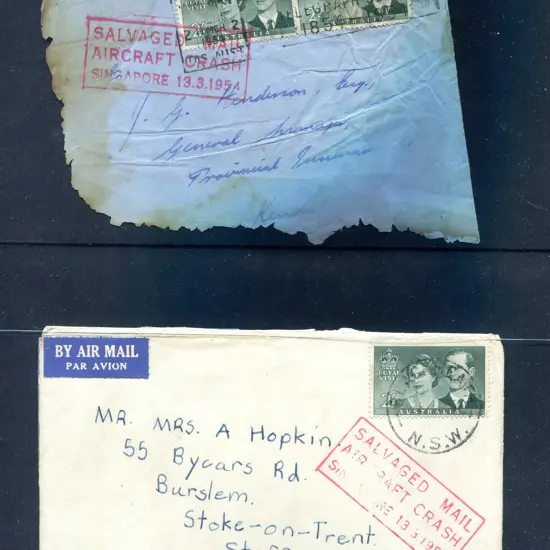 AUSTRALIA
SALVAGED MAIL
AIRCRAFT CRASH
SINGAPORE 13.3.1954
J. G. Henderson, Esq,
General Manager,
Provincial Insurance
BY AIR MAIL
PAR AVION
ROYAL
VISIT
2½D
AUSTRALIA
N.S.W.
MR. MRS. A Hopkin,
55 Bycars Rd.
Burslem.
Stoke-on-Trent.
SALVAGED MAIL
AIRCRAFT CRASH
SINGAPORE 13.3.195